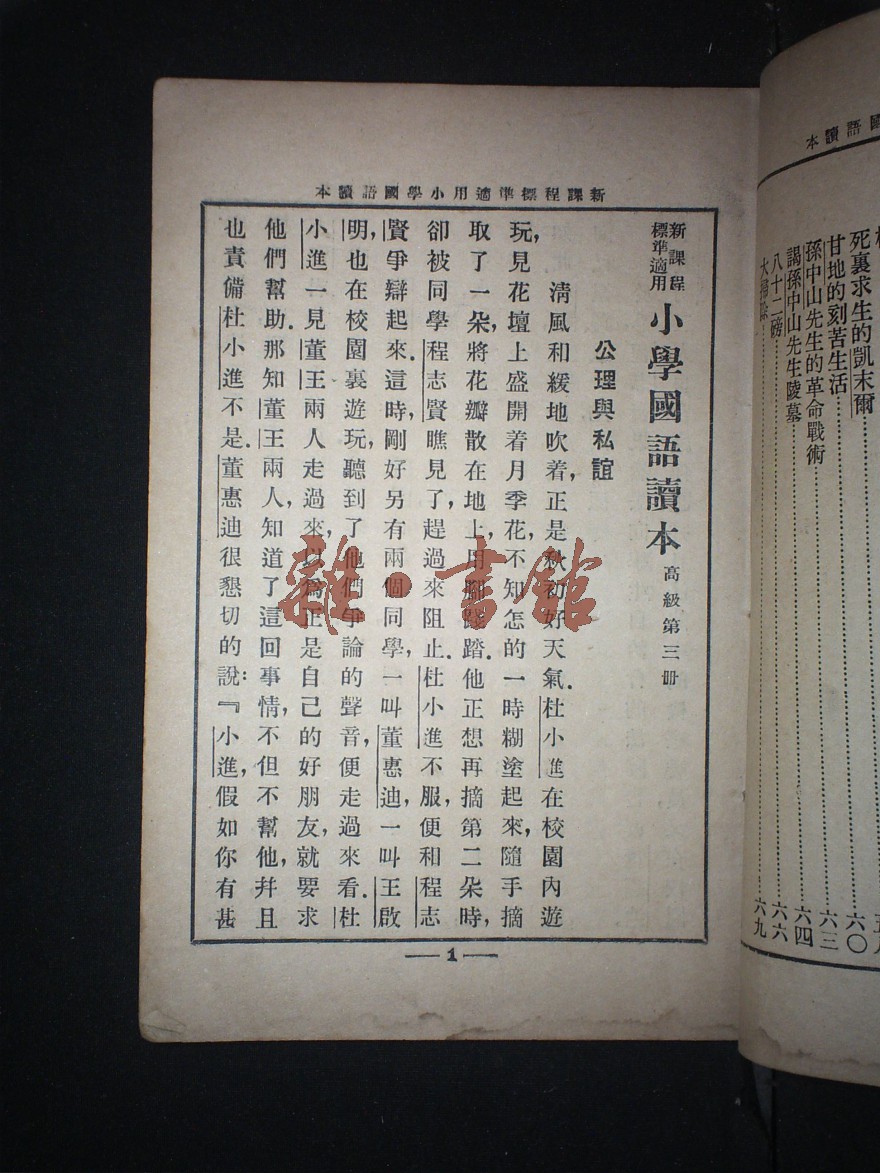 本讀語國學小用適準標程課新
新課程
標準適用
小學國語讀本 高級第三册
公理與私誼
淸風和緩地吹着,正是秋初好天氣.杜小進在校園內遊
玩,見花壇上盛開着月季花,不知怎的一時糊塗起來,隨手摘
取了一朵,將花瓣散在地上,用腳踐踏.他正想再摘第二朵時,
卻被同學程志賢瞧見了,趕過來阻止.杜小進不服,便和程志
賢爭辯起來.這時,剛好另有兩個同學,一叫董惠迪,一叫王啟
明,也在校園裏遊玩,聽到了他們爭論的聲音,便走過來看.杜
小進一見董王兩人走過來,以爲正是自己的好朋友,就要求
他們幫助.那知董王兩人,知道了這回事情,不但不幫他,幷且
也責備杜小進不是.董惠迪很懇切的說:『小進,假如你有甚
1
雜·書館
本讀語國
死裏求生的凱末爾 六〇
甘地的刻苦生活 六三
孫中山先生的革命戰術 六四
謁孫中山先生陵墓 六六
八十二磅 六九
大掃除